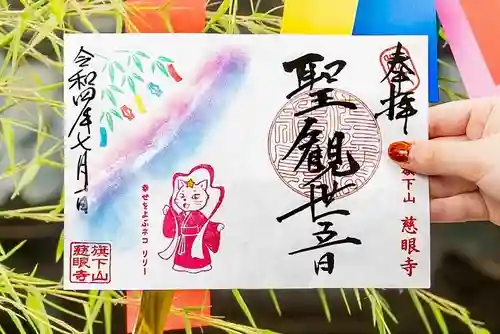 奉拝
聖観世五日
旗下山 慈眼寺
幸せをよぶネコ リリー
令和四年七月一日
旗下山
慈眼寺